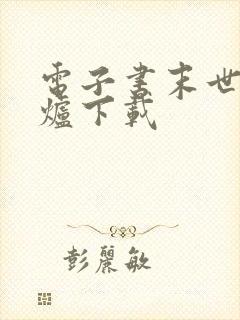 電子書末世
爐下載
彭麗敏